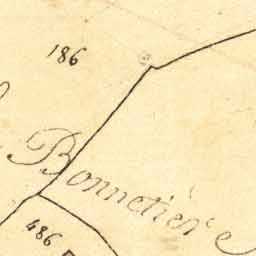 186
Bonnetière
486